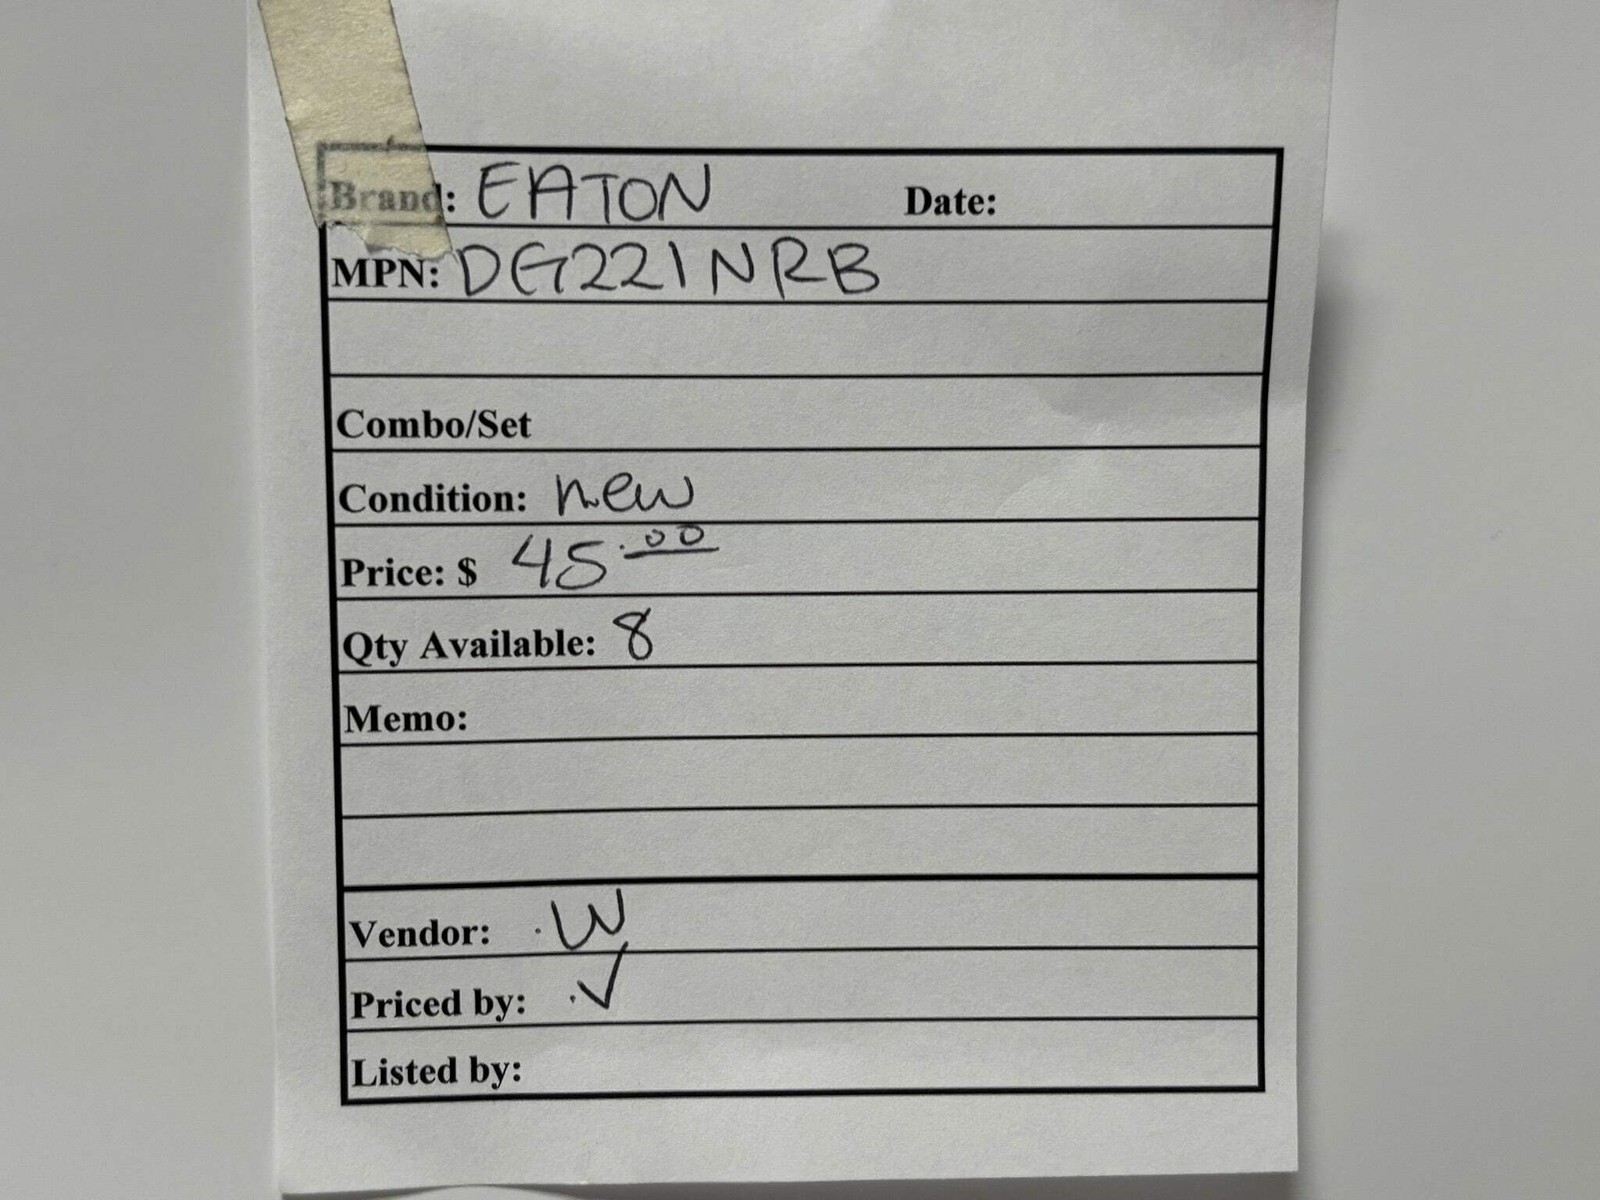 Brand: EATON Date:
MPN: DG221NRB
Combo/Set
Condition: new
Price: $ 45.00
Qty Available: 8
Memo:
Vendor: .W
Priced by: .✓
Listed by: